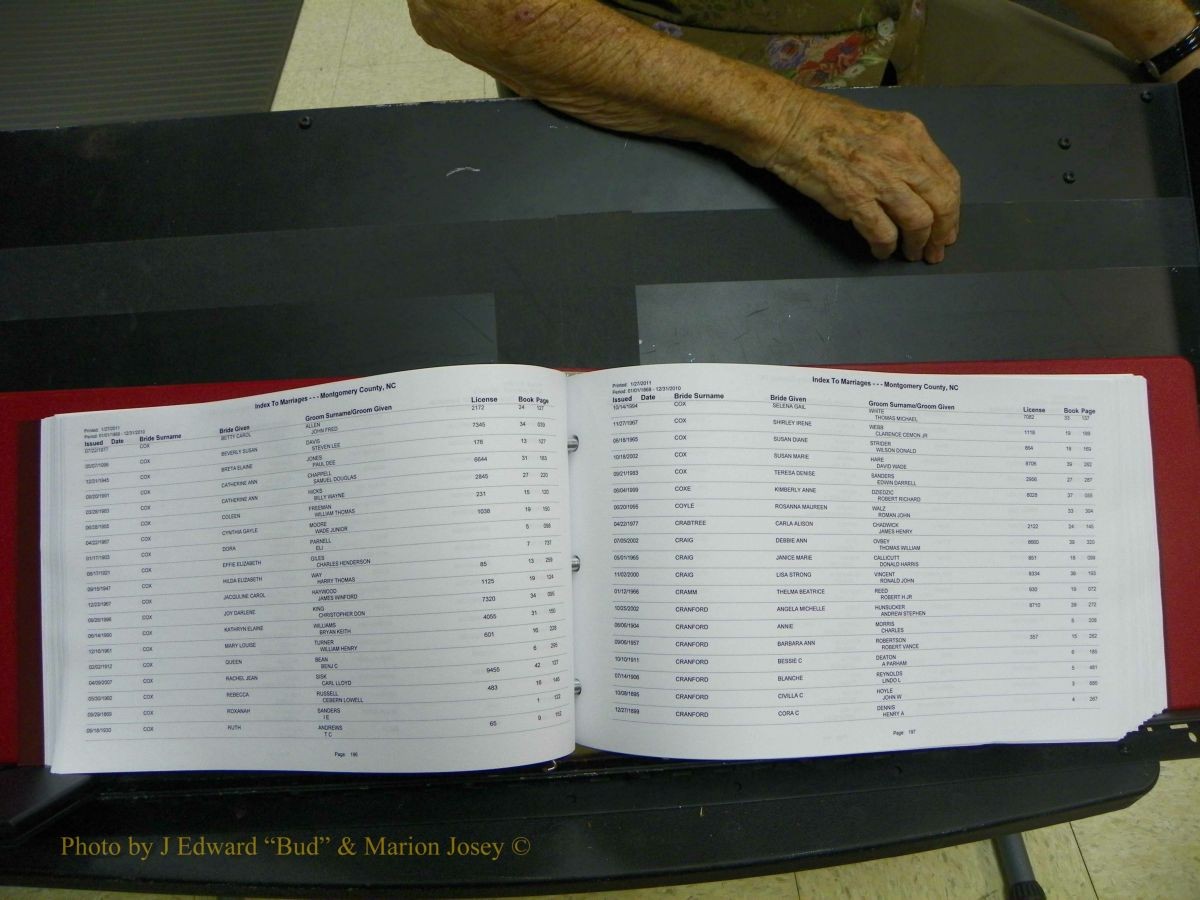 Index To Marriages - - - Montgomery County, NC
Printed: 1/27/2011
Period: 01/01/1868 - 12/31/2010
Issued Date Bride Surname Bride Given Groom Surname/Groom Given License Book Page
COX BETTY CAROL ALLEN 2172 24 127
JOHN FRED
COX BEVERLY SUSAN DAVIS 7345 34 039
STEVEN LEE
12/21/1945 COX BRETA ELAINE JONES 178 13 127
PAUL DEE
COX CATHERINE ANN CHAPPELL 6644 31 183
SAMUEL DOUGLAS
COX CATHERINE ANN HICKS 2845 27 220
BILLY WAYNE
COX COLEEN FREEMAN 231 15 120
WILLIAM THOMAS
04/22/1967 COX CYNTHIA GAYLE MOORE 1038 19 150
WADE JUNIOR
01/17/1903 COX DORA PARNELL 5 098
ELI
COX EFFIE ELIZABETH GILES 7 737
CHARLES HENDERSON
09/15/1947 COX HILDA ELIZABETH WAY 85 13 259
HARRY THOMAS
12/23/1967 COX JACQULINE CAROL HAYWOOD 1125 19 124
JAMES WINFORD
COX JOY DARLENE KING 7320 34 095
CHRISTOPHER DON
06/14/1990 COX KATHRYN ELAINE WILLIAMS 4055 31 150
BRYAN KEITH
12/16/1961 COX MARY LOUISE TURNER 601 16 228
WILLIAM HENRY
02/02/1912 COX QUEEN BEAN 6 295
BENJ C
04/09/2007 COX RACHEL JEAN SISK 9456 42 127
CARL LLOYD
05/30/1962 COX REBECCA RUSSELL 483 16 145
CEBERN LOWELL
COX ROXANAH SANDERS 1 112
I E
09/18/1930 COX RUTH ANDREWS 65 9 112
T C
Page: 196
Index To Marriages - - - Montgomery County, NC
Printed: 1/27/2011
Period: 01/01/1868 - 12/31/2010
Issued Date Bride Surname Bride Given Groom Surname/Groom Given License Book Page
10/14/1994 COX SELENA GAIL WHITE 7082 33 137
THOMAS MICHAEL
11/27/1967 COX SHIRLEY IRENE WEBB 1118 19 189
CLARENCE CEMON JR
06/18/1965 COX SUSAN DIANE STRIDER 864 18 169
WILSON DONALD
10/18/2002 COX SUSAN MARIE HARE 8706 39 262
DAVID WADE
09/21/1983 COX TERESA DENISE SANDERS 2956 27 287
EDWIN DARRELL
06/04/1999 COXE KIMBERLY ANNE DZIEDZIC 8028 37 055
ROBERT RICHARD
06/20/1995 COYLE ROSANNA MAUREEN WALZ 33 304
ROMAN JOHN
04/22/1977 CRABTREE CARLA ALISON CHADWICK 2122 24 145
JAMES HENRY
07/05/2002 CRAIG DEBBIE ANN OVBEY 8660 39 320
THOMAS WILLIAM
05/01/1965 CRAIG JANICE MARIE CALLICUTT 851 18 099
DONALD HARRIS
11/02/2000 CRAIG LISA STRONG VINCENT 8334 38 193
RONALD JOHN
01/12/1966 CRAMM THELMA BEATRICE REED 930 19 072
ROBERT H JR
10/25/2002 CRANFORD ANGELA MICHELLE HUNSUCKER 8710 39 272
ANDREW STEPHEN
06/06/1904 CRANFORD ANNIE MORRIS 5 208
CHARLES
09/06/1957 CRANFORD BARBARA ANN ROBERTSON 357 15 262
ROBERT VANCE
10/10/1911 CRANFORD BESSIE C DEATON 6 185
A PARHAM
07/14/1906 CRANFORD BLANCHE REYNOLDS 5 481
LINDO L
10/08/1895 CRANFORD CIVILLA C HOYLE 3
JOHN W
12/27/1899 CRANFORD CORA C DENNIS 4 267
HENRY A
Page: 197
Photo by J Edward “Bud” & Marion Josey ©